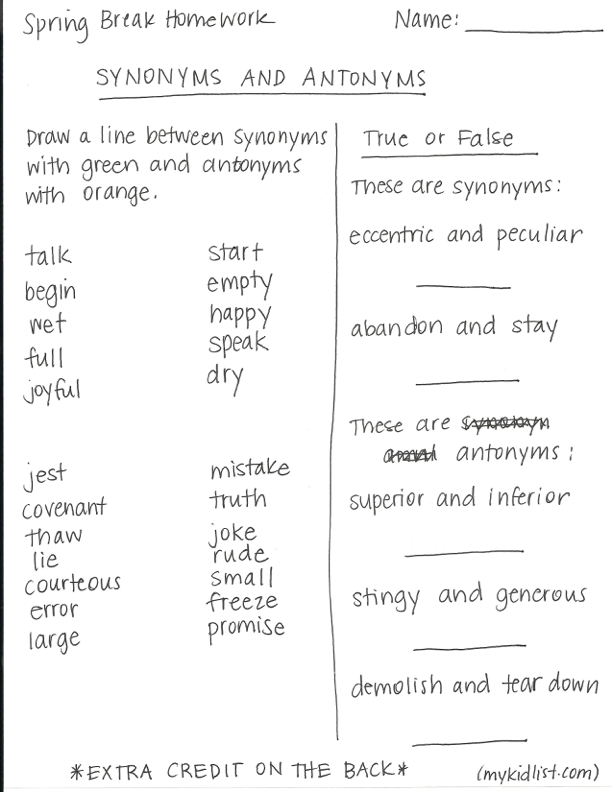 Spring Break Homework
Name:
SYNONYMS AND ANTONYMS
Draw a line between synonyms
with green and antonyms
with orange.
talk start
begin empty
wet happy
full speak
joyful dry
jest mistake
covenant truth
thaw joke
lie rude
courteous small
error freeze
large promise
True or False
These are synonyms:
eccentric and peculiar
abandon and stay
These are
antonyms:
superior and inferior
stingy and generous
demolish and tear down
*EXTRA CREDIT ON THE BACK*
(mykidlist.com)